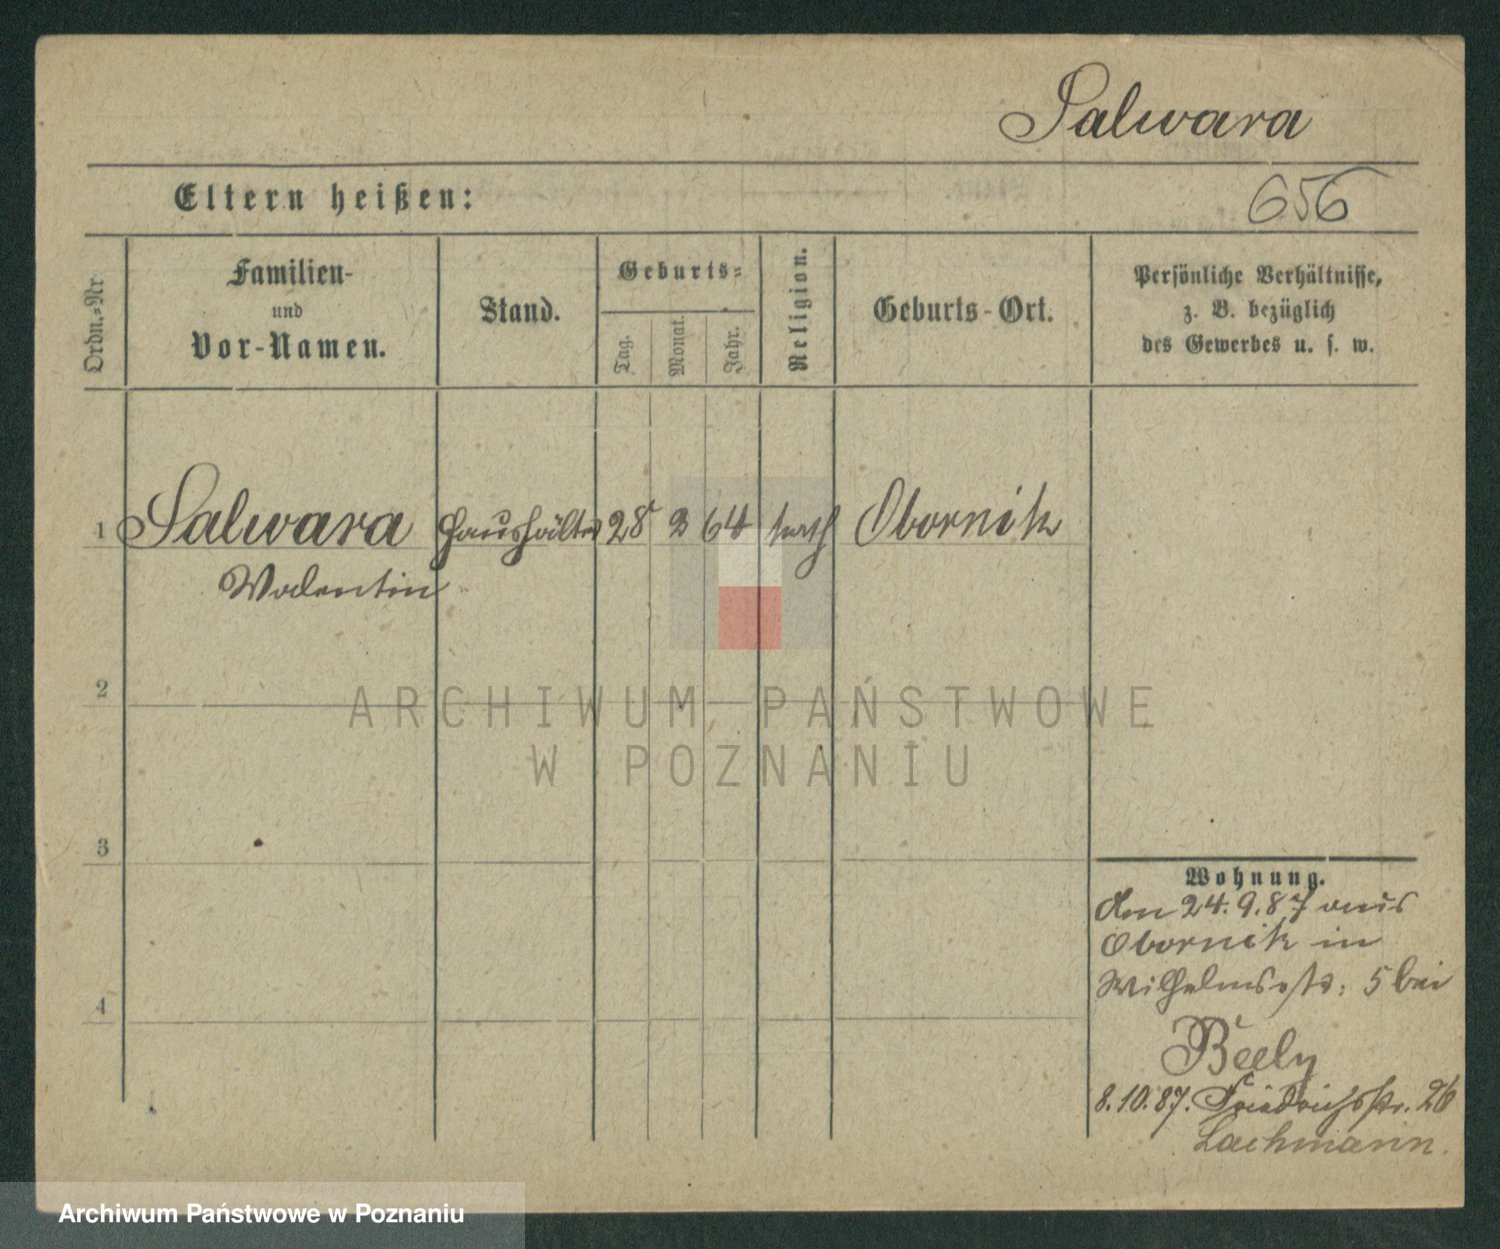 Salwara
Eltern heißen:
656
Ordn.-Nr
Familien-
und
Vor-Namen.
Stand.
Geburts-
Tag.
Monat.
Jahr.
Religion.
Geburts-Ort.
Persönliche Verhältnisse,
z. B. bezüglich
des Gewerbes u. s. w.
1 Salwara Haushälter 28 2 64 kath Obornik
Valentin
2
ARCHIWUM PAŃSTWOWE
W POZNANIU
3
Wohnung.
Am 24.9.87 aus
Obornik in
Wilhelmsstr. 5 bei
4
Beely
8.10.87. Friedrichsstr. 26
Lachmann.
Archiwum Państwowe w Poznaniu